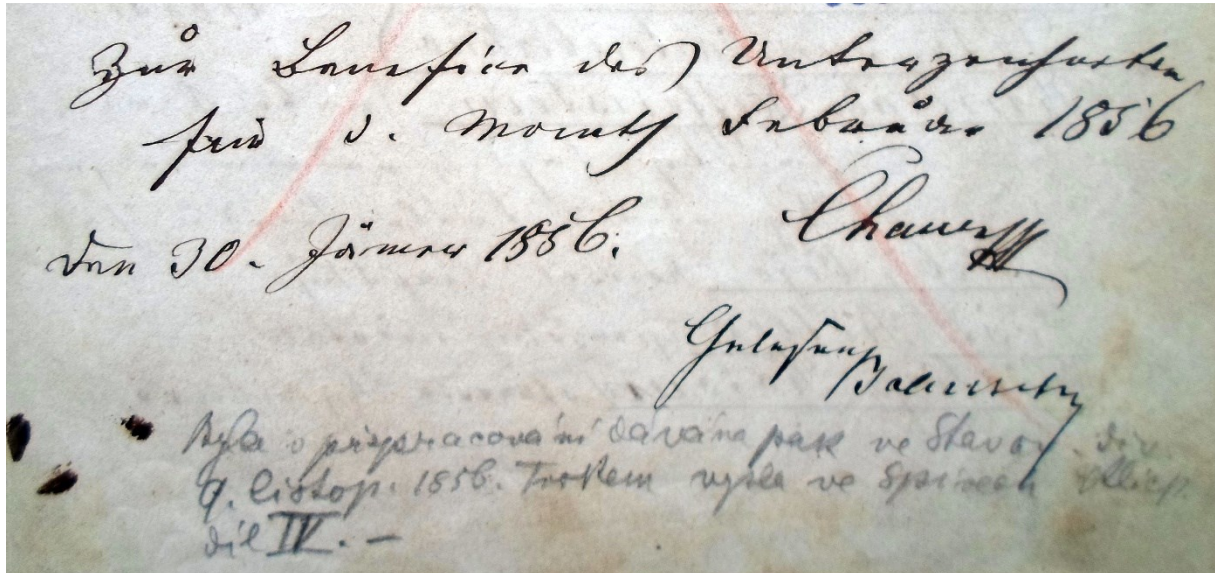 Zur Benefice des Unterzeichneten
für d. Monath Februar 1856
Den 30. Jänner 1856.
Chauer
Gelesen
Byla v přepracování dávána pak ve Stavov. div.
9. listop. 1856. Tiskem vyšla ve Spisech
díl IV. —